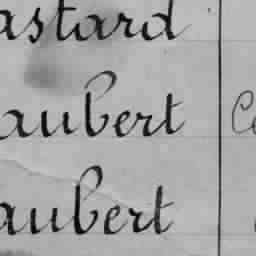 astard
aubert
aubert